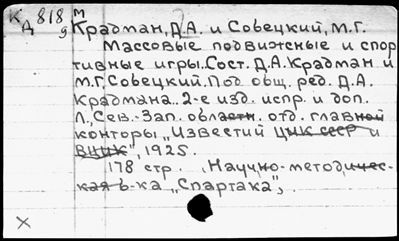 К 818 м
Д g
Крадман, Д.А. и Совецкий, М.Г.
Массовые подвижные и спор
тивные игры. Сост. Д.А. Крадман и
М.Г. Совецкий. Под общ. ред. Д.А.
Крадмана. 2-е изд. испр. и доп.
Л., Сев.-Зап. областн. отд. главной
конторы „Известий ЦИК СССР и
ВЦИК", 1925.
178 стр. (Научно-методичес-
кая б-ка „Спартака",